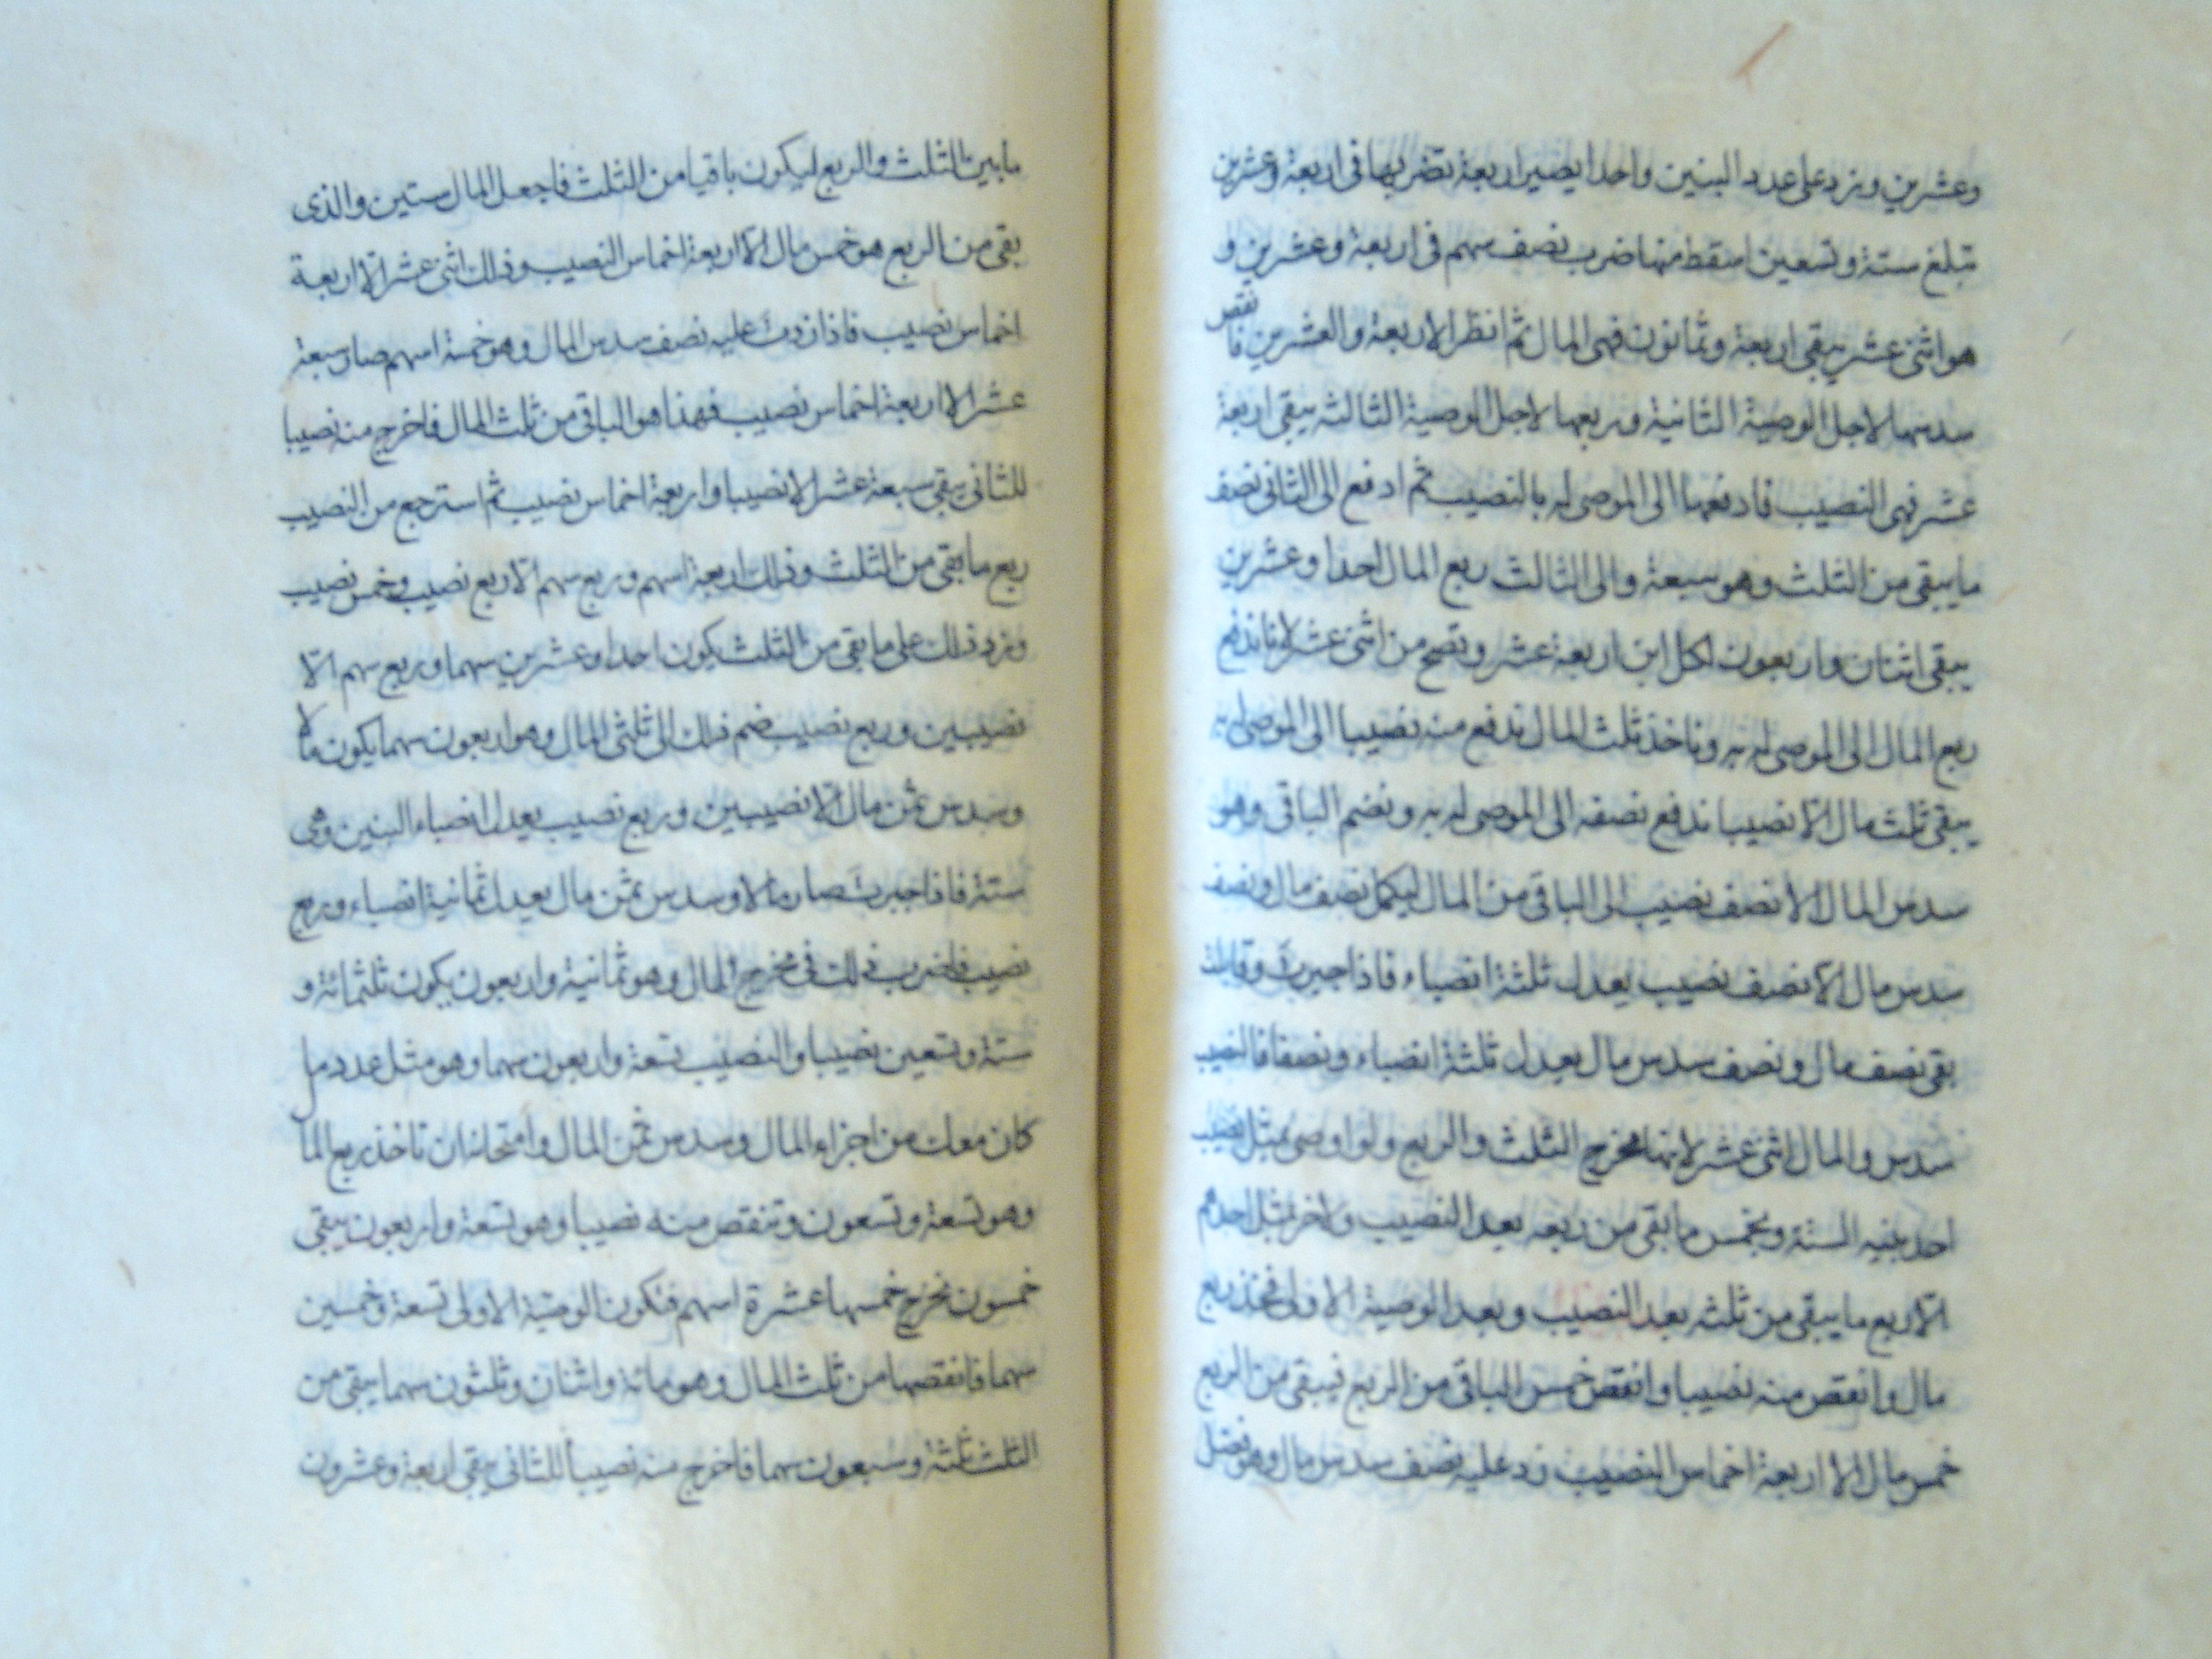 وعشرين وزد على عدد البنين واحدا يصير اربعة تضربها فى اربعة وعشرين
تبلغ ستة وتسعين اسقط منها ضرب نصف سهم فى اربعة وعشرين و
هو اثنى عشر يبقى اربعة وثمانون فهى المال ثم انظر الاربعة والعشرين فانقص
سدسها لاجل الوصية الثانية وربعها لاجل الوصية الثالثة يبقى اربعة
عشر فهى النصيب فادفعها الى الموصى له بالنصيب ثم ادفع الى الثانى نصف
ما يبقى من الثلث وهو سبعة والى الثالث ربع المال احدا وعشرين
يبقى اثنان واربعون لكل ابن اربعة عشر وتصح من اثنى عشر لانا ندفع
ربع المال الى الموصى له به وناخذ ثلث المال ندفع منه نصيبا الى الموصى له به
يبقى ثلث مال الا نصيبا ندفع نصفه الى الموصى له به ونضم الباقى وهو
سدس المال الا نصف نصيب الى الباقى من المال ليكمل نصف مال ونصف
سدس مال الا نصف نصيب يعدل ثلثة انصباء فاذا جبرت وقابلت
بقى نصف مال ونصف سدس مال يعدل ثلثة انصباء ونصفا فالنصيب
سدس والمال اثنى عشر لانها مخرج الثلث والربع ولو اوصى بمثل نصيب
احد بنيه الستة وبخمس ما بقى من ربعه بعد النصيب ولاخر بمثل احدهم
الا ربع ما يبقى من ثلثه بعد النصيب وبعد الوصية الاولى فخذ ربع
مال وانقص منه نصيبا وانقص خمس الباقى من الربع فيبقى من الربع
خمس مال الا اربعة اخماس النصيب زد عليه نصف سدس مال وهو فضل
ما بين الثلث والربع ليكون باقيا من الثلث فاجعل المال ستين والذى
بقى من الربع هو خمس مال الا اربعة اخماس النصيب وذلك اثنى عشر الا اربعة
اخماس نصيب فاذا زدت عليه نصف سدس المال وهو خمسة اسهم صار سبعة
عشر الا اربعة اخماس نصيب فهذا هو الباقى من ثلث المال فاخرج منه نصيبا
للثانى يبقى سبعة عشر الا نصيبا واربعة اخماس نصيب ثم استرجع من النصيب
ربع ما بقى من الثلث وذلك اربعة اسهم وربع سهم الا ربع نصيب وخمس نصيب
وزد ذلك على ما بقى من الثلث يكون احدا وعشرين سهما وربع سهم الا
نصيبين وربع نصيب ضم ذلك الى ثلثى المال وهو اربعون سهما يكون مالا
وسدس ثمن مال الا نصيبين وربع نصيب يعدل انصباء البنين وهى
ستة فاذا جبرت صار مالا وسدس ثمن مال يعدل ثمانية انصباء وربع
نصيب فاضرب ذلك فى مخرج المال وهو ثمانية واربعون يكون ثلثمائة و
ستة وتسعين نصيبا والنصيب تسعة واربعون سهما وهو مثل عدد ما
كان معك من اجزاء المال وسدس ثمن المال وامتحانه ان تاخذ ربع المال
وهو تسعة وتسعون وتنقص منه نصيبا وهو تسعة واربعون يبقى
خمسون نخرج خمسها عشرة اسهم فتكون الوصية الاولى تسعة وخمسين
سهما فانقصها من ثلث المال وهو مائة واثنان وثلثون سهما يبقى من
الثلث ثلثة وسبعون سهما فاخرج منه نصيبا للثانى يبقى اربعة وعشرون